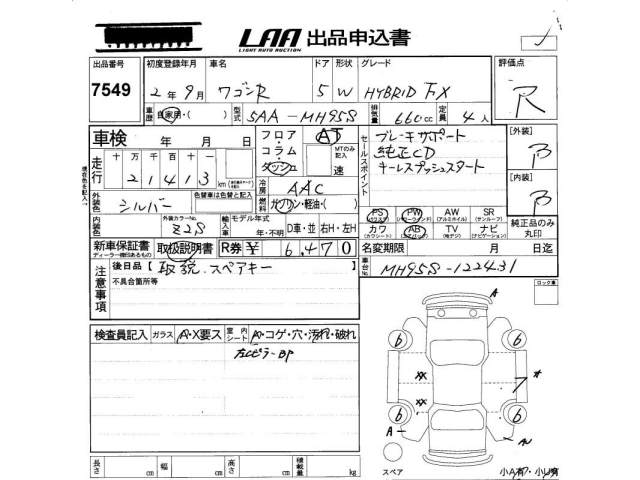 LAA 出品申込書
LIGHT AUTO AUCTION
出品番号 初度登録年月 車名 ドア 形状 グレード 評価点
7549 2年9月 ワゴンR 5 W HYBRID FX R
車歴 自家用・( ) 型式 5AA-MH95S 排気量 660cc 定員 4人
車検 年 月 日
フロア・コラム・ダッシュ AT MTのみ記入 速
セールスポイント ブレーキサポート
純正CD
キーレスプッシュスタート
[外装] B
[内装] B
走行 十万 万 千 百 十 一
21413 km
冷房 AAC
外装色 シルバー 色替車は色替と記入
燃料 ガソリン・軽油・( )
内装色 外装カラーNo. Z2S 輸入車 モデル年式 年・不明 D車・並 右H・左H
PS PW AW SR
(パワステ) (パワーウィンド) (アルミホイル) (サンルーフ)
カワ AB TV ナビ
(レザーシート) (エアバッグ) (地デジ) (ナビゲーション)
純正品のみ丸印
新車保証書 取扱説明書 R券 ¥ 6,470 名変期限 月 日迄
ディーラー機印あるもの
注意事項 後日品【取説、スペアキー
不具合箇所等
車台No. MH95S-122431
ロック車
検査員記入 ガラス A・X要ス 室内シート A・コゲ・穴・汚れ・破れ
左Cピラー BP
A
6 6
XX
XX
6 6
A
スペア
長さ cm 幅 cm 高さ cm 積載量 kg
現在色を記入。